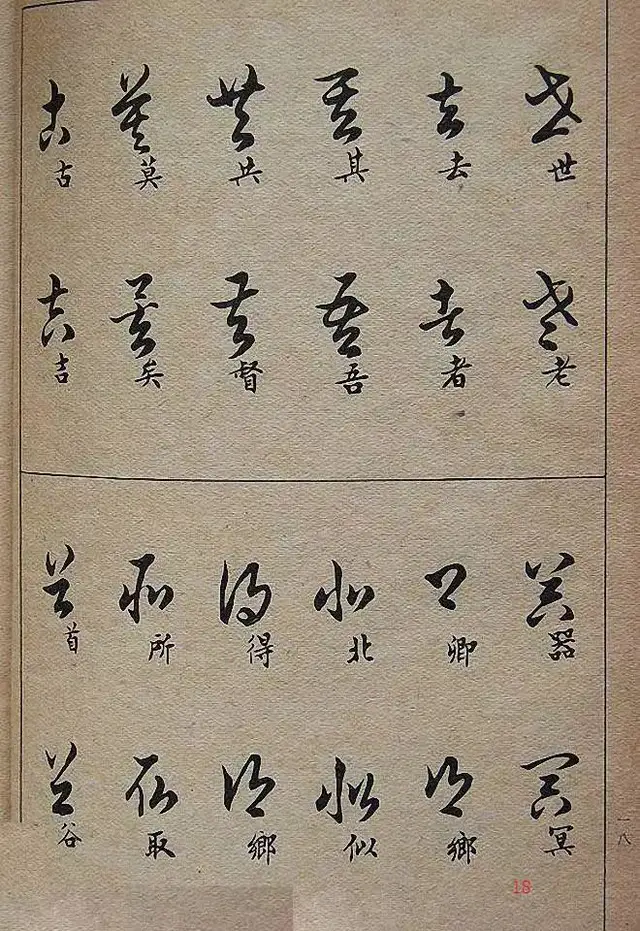 世老
去者
其吾
共督
莫矣
古吉
器冥
卿鄉
北似
得鄉
所取
首谷
一八
18